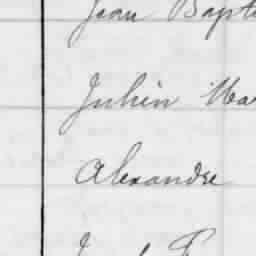 Jean Bapt
Julien Ma
Alexandre